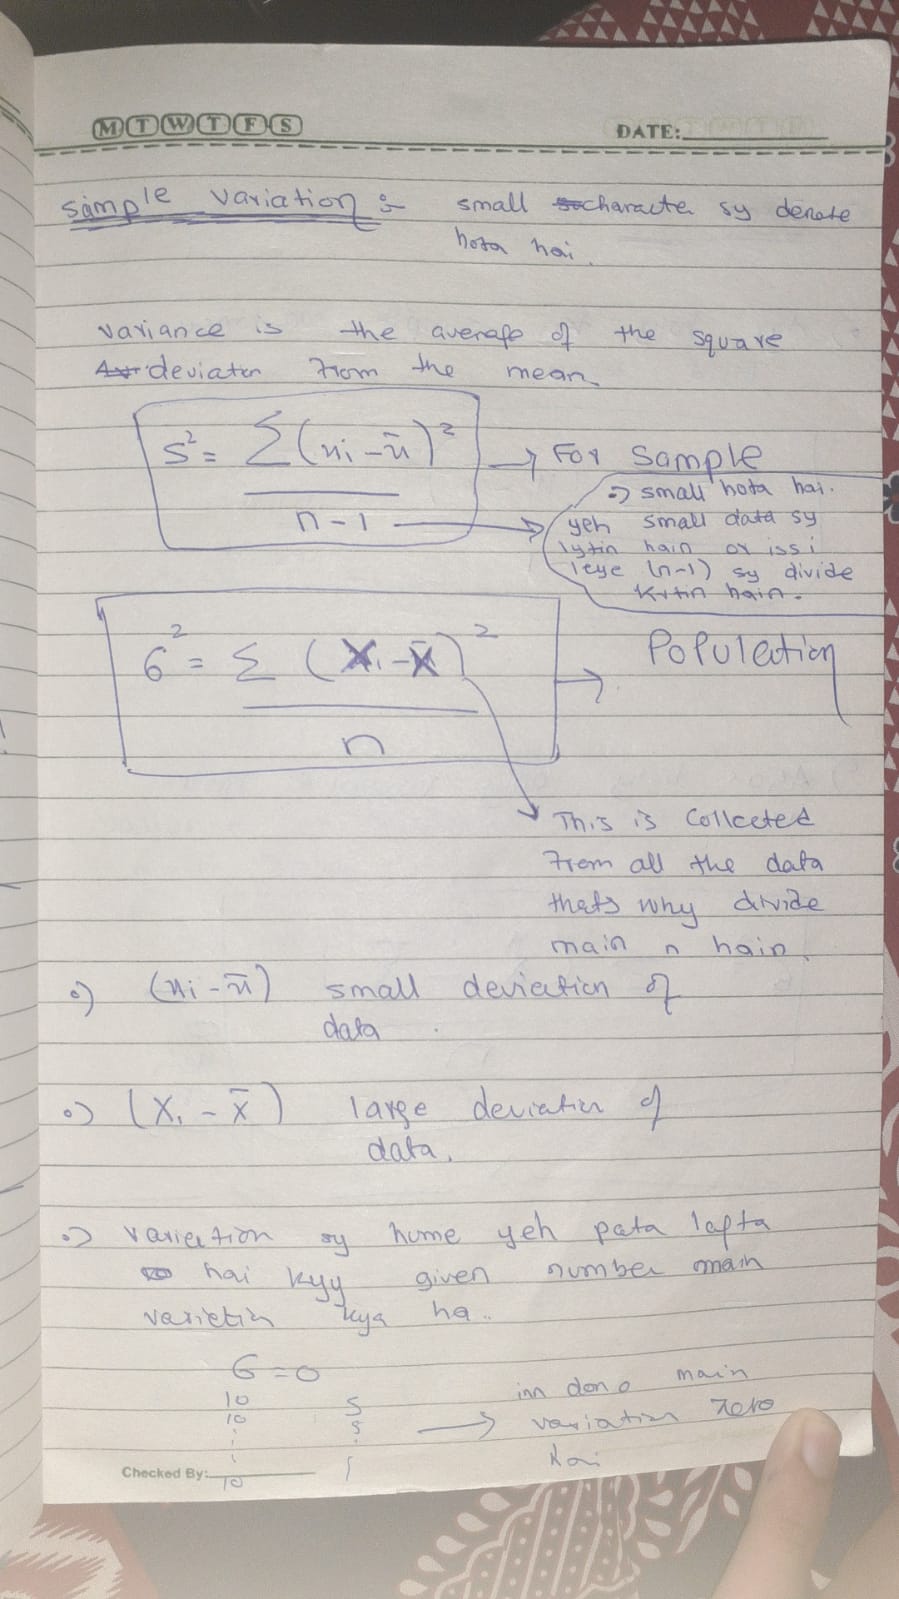 M T W T F S
DATE:
sample variation :-
small character sy denote
hota hai.
variance is the average of the square
deviation from the mean
S² = Σ(xi - x̄)² / n-1 → For Sample
=> small hota hai.
yeh small data sy
lytin hain or issi
leye (n-1) sy divide
krtin hain.
6² = Σ (Xi - X̄)² / n → Population
This is Collected
from all the data
thats why divide
main n hain.
(xi - x̄) small deviation of
data.
(Xi - x̄) large deviation of
data.
variation sy hume yeh pata lagta
hai kyy given number main
variation kya ha..
6 = 0
10 5
10 5
10 5
→ inn dono main
variation zero
hai
Checked By: